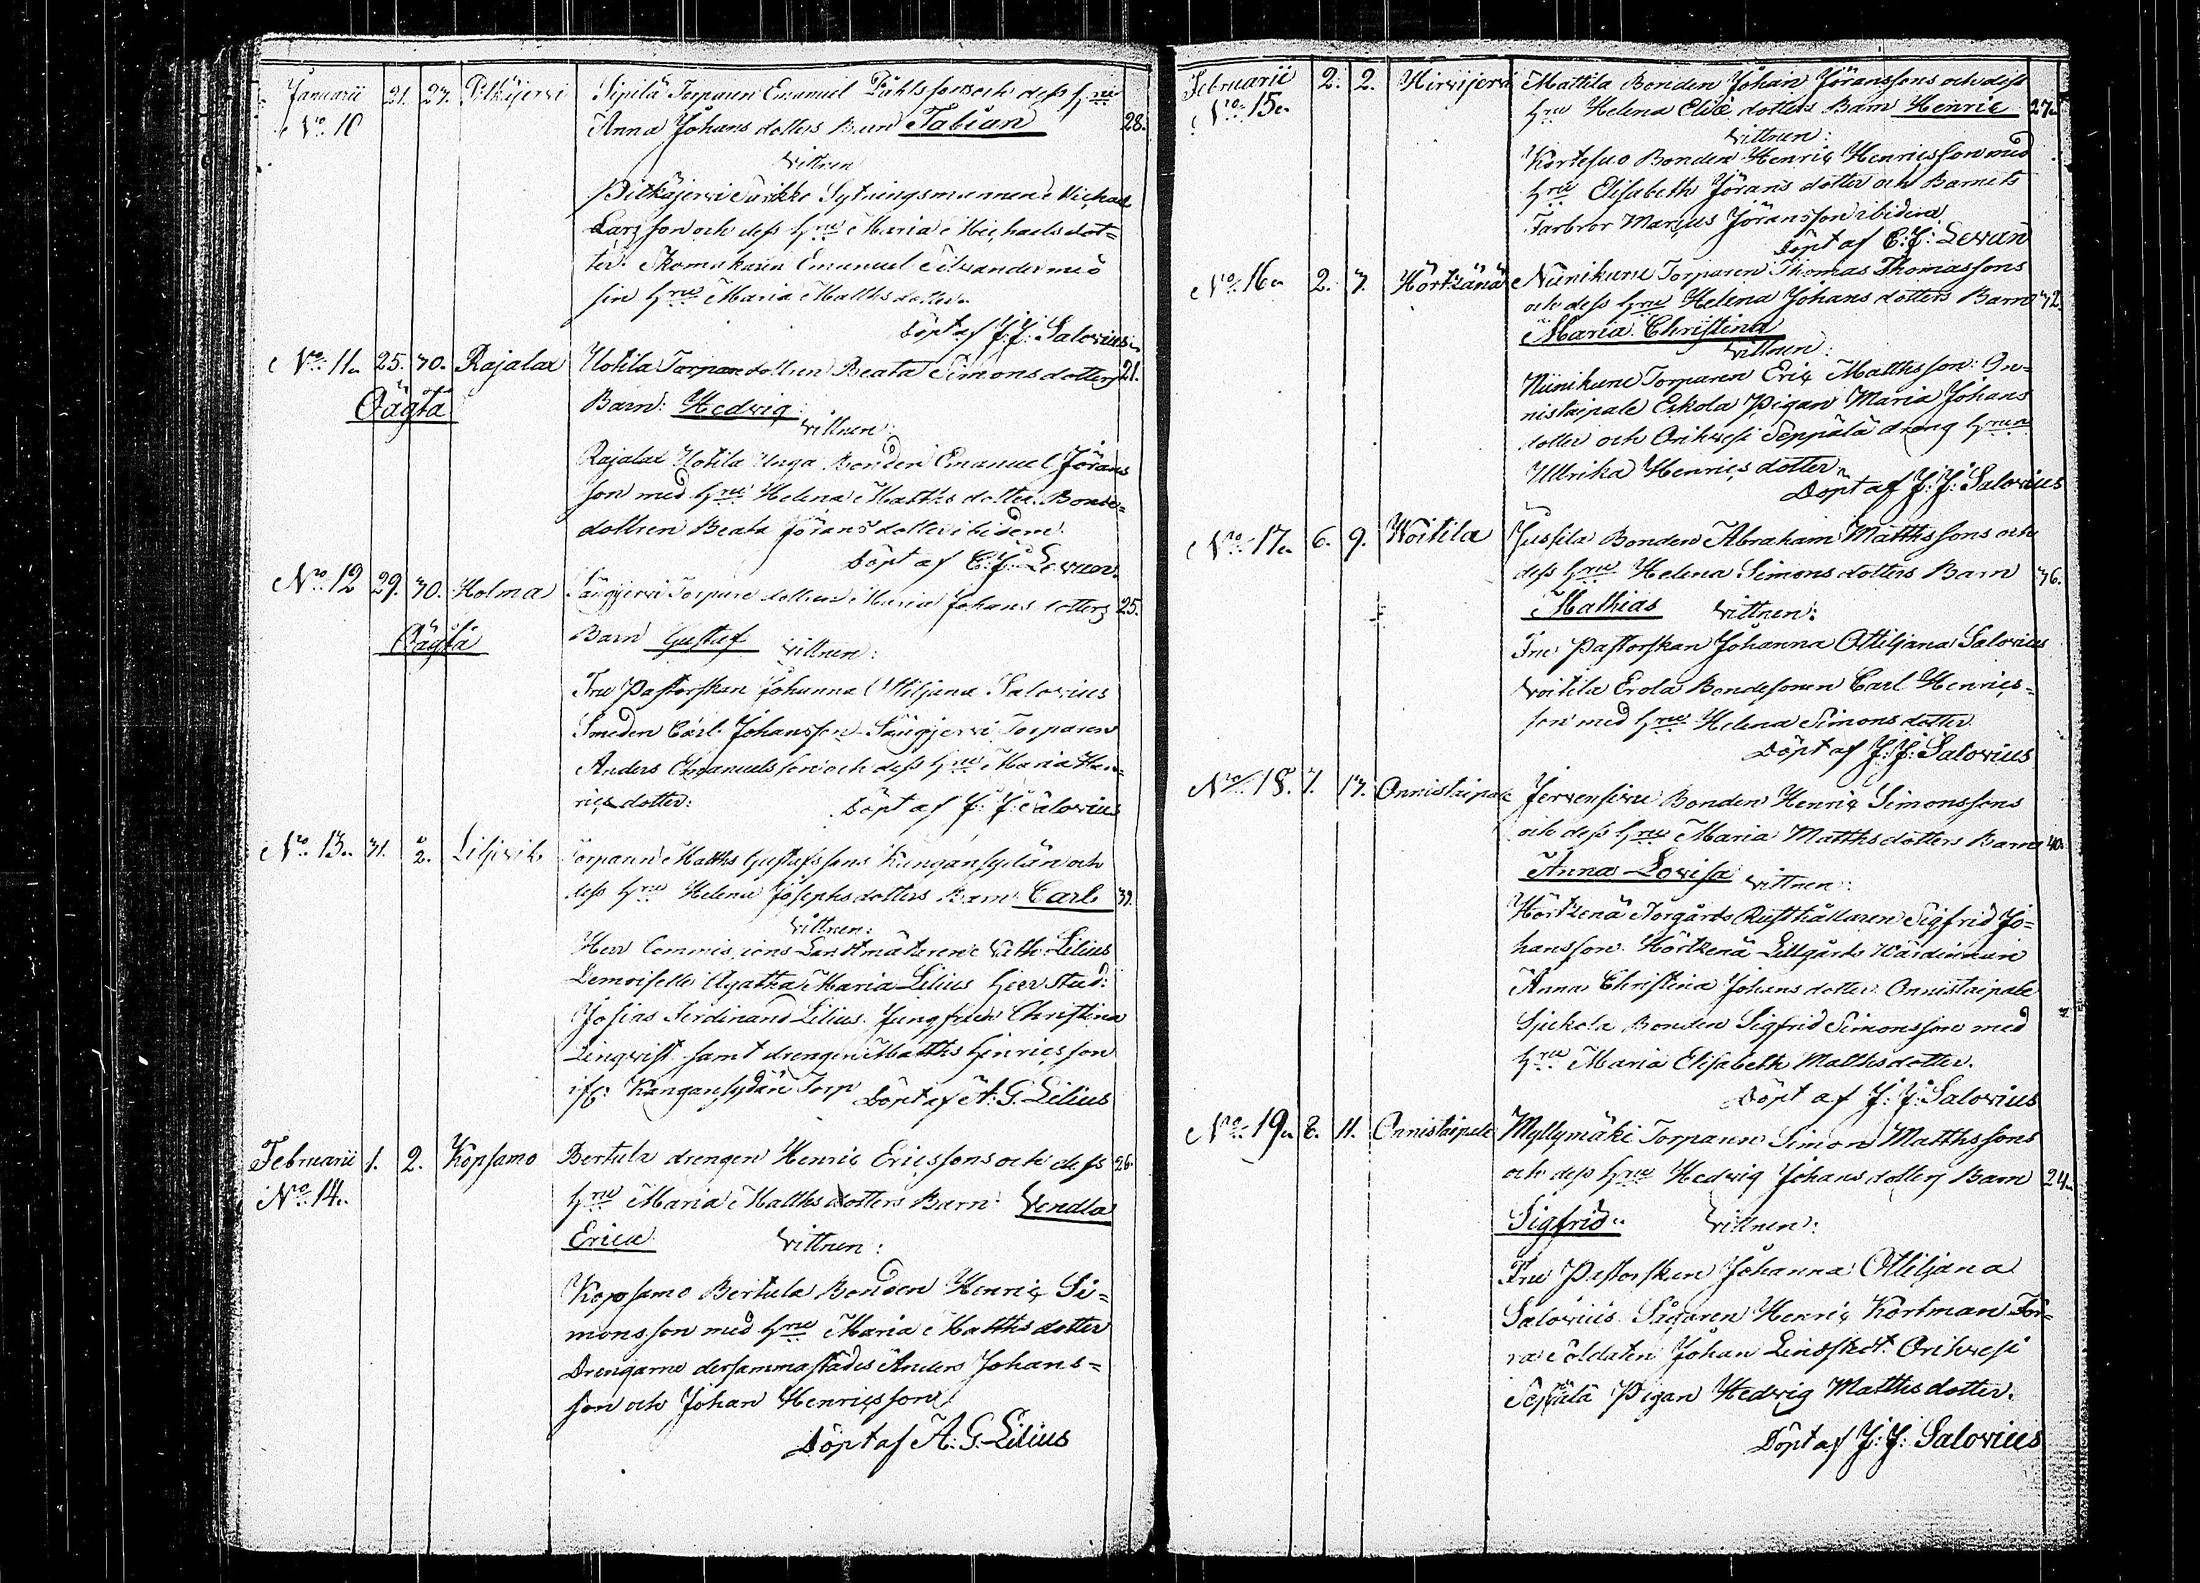 Januarii 21. 27. Pitkäjervi Sipilä Torparen Emanuel Påhlssons och dess hru
No 10 Anna Johans dotters Barn Fabian 28.
Vittnen
Pitkäjervi Sytningsmannen Michael
Larsson och dess hru Maria Michaels dot=
ter. Skomakaren Emanuel med
sin hru Maria Matths dotter
Döpt af J: J: Salovius
No 11. 25. 30. Rajalax Uotila Torparedottren Beata Simonsdotters 21.
Oägta Barn: Hedvig
Vittnen:
Rajalax Uotila Unga Bonden Emanuel Jörans
son med hru Helena Matths dotter. Bonde=
dottren Beata Jörans dotter ibidem.
Döpt af C: J: Levan.
No 12 29. 30. Holma Torpare dottren Maria Johans dotters 25.
Oägta Barn Gustaf Vittnen:
Fru Pastorskan Johanna Ottiljana Salovius
Smeden Carl Johansson Torparen
Anders Emanuelsson och dess hru Maria Hen=
rics dotter: Döpt af J: J: Salovius
No 13. 31. 2. Liljevik Torparen Matths Gustafssons Kangansydän och
dess hru Helena Josephsdotters Barn Carl 39.
Vittnen:
Herr Commissions Landtmätaren Lilius
Demoiselle Agatha Maria Lilius Herr Stud:
Josias Ferdinand Lilius. Jungfrun Christina
Linqvist samt drengen Matths Henricsson
ifr: Kangansydän Torp Döpt af A: G. Lilius
Februarii 1. 2. Kopsamo Bertula drengen Henric Ericssons och dess 26.
No 14. hru Maria Matths dotters Barn Vendla
Erica Vittnen:
Kopsamo Bertula Bonden Henric Si=
monsson med hru Maria Matths dotter
Drengarne dersammastädes Anders Johans=
son och Johan Henricsson
Döpt af A: G: Lilius
Februarii 2. 2. Hirvijervi Mattila Bonden Johan Jöranssons och dess
No 15. hru Helena Elice dotters Barn Henric 27.
Vittnen:
Kortesuo Bonden Henric Henricsson med
hru Elisabeth Jörans dotter och Barnets
Farbror Marcus Jöransson ibidem
Döpt af C: J: Levan
No 16. 2. 7. Hörtzänä Niinikune Torparen Thomas Thomassons
och dess hru Helena Johans dotters Barn 32.
Maria Christina
Vittnen:
Niinikune Torparen Eric Matthsson: On=
nistaipale Eskola Pigan Maria Johans
dotter och Orihvesi Seppälä dreng hrun
Ullrika Henrics dotter
Döpt af J: J: Salovius
No 17. 6. 9. Woitila Jussila Bonden Abraham Matthssons och
dess hru Helena Simons dotters Barn 36.
Mathias Vittnen:
Fru Pastorskan Johanna Ottiljana Salovius
Voitila Erola Bondesonen Carl Henrics=
son med hru Helena Simons dotter
Döpt af J: J: Salovius
No 18. 7. 13. Onnistaipale Jervensivu Bonden Henric Simonssons
och dess hru Maria Matths dotters Barn 40.
Anna Lovisa Vittnen:
Hörtzenä Storgårds Rusthållaren Sigfrid Jo=
hansson. Hörtzenä Lillgårds Värdinnan
Anna Christina Johans dotter. Onnistaipale
Bonden Sigfrid Simonsson med
hru Maria Elisabeth Matths dotter.
Döpt af J: J: Salovius
No 19. 8. 11. Onnistaipale Myllymäki Torparen Simon Matthssons
och dess hru Hedvig Johans dotters Barn 24.
Sigfrid Vittnen:
Fru Pastorskan Johanna Ottiljana
Salovius. Sågaren Henric Kortman För=
ra Soldaten Johan Lindstedt. Orihvesi
Seppälä Pigan Hedvig Matths dotter.
Döpt af J: J: Salovius